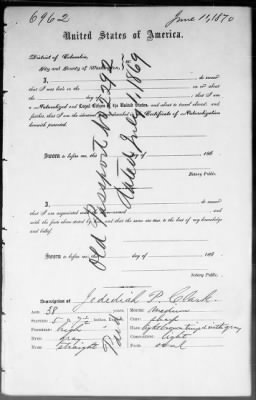 6962
June 11, 1870
United States of America.
District of Columbia,
City and County of Washington,
I,
do swear
that I was born in the
on or about
the
day of
that I am
a Naturalized and Legal Citizen of the United States, and about to travel abroad, and
further, that I am the
Certificate of Naturalization
herewith presented.
Sworn to before me, this
day of
186
Notary Public.
I,
do swear
that I am acquainted with the above named
and
with the facts above stated by
and that the same are true to the best of my knowledge
and belief.
Sworn to before me, this
day of
186
Notary Public.
Old Passport No 5292
Dated July 1, 1869
Description of Jedediah P. Clark.
AGE: 38 years,
MOUTH: Medium
STATURE: 5 ft
inches, English,
CHIN:
FOREHEAD: high
HAIR: light brown tinged with gray
EYES: gray
COMPLEXION: light
NOSE: straight
FACE: oval
Paid